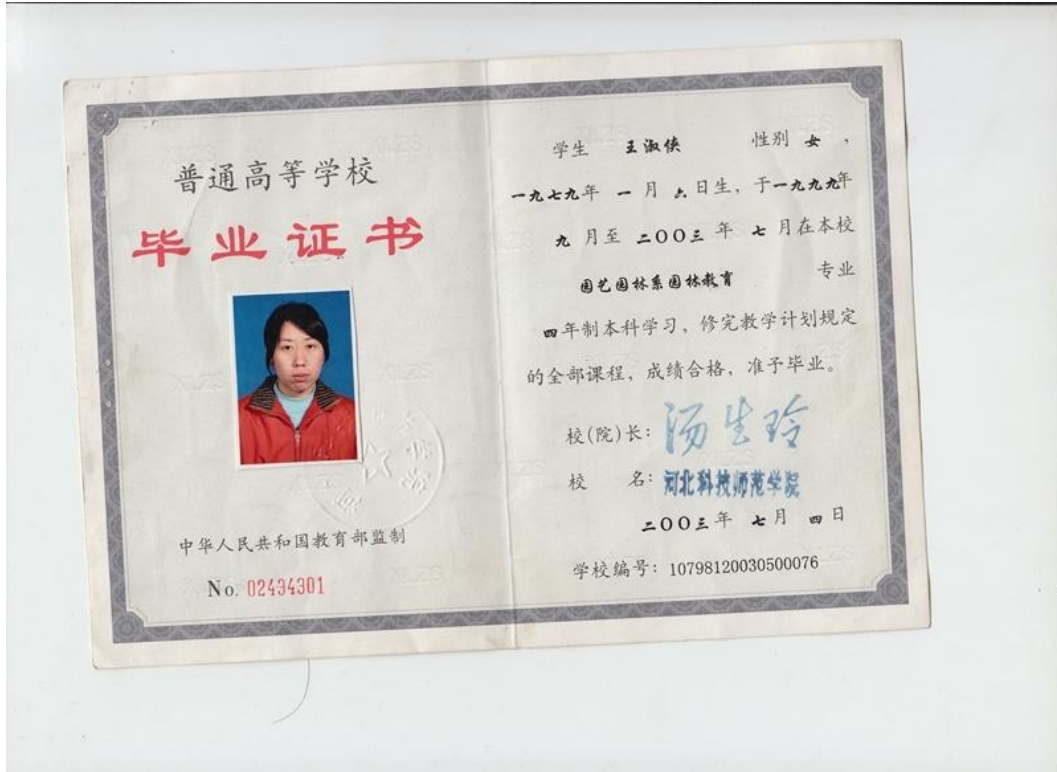 普通高等学校
毕业证书
中华人民共和国教育部监制
No. 02434301
学生 王淑侠 性别 女，
一九七九年 一 月 六日生，于一九九九年
九 月至 二〇〇三 年 七 月在本校
园艺园林系园林教育 专业
四年制本科学习，修完教学计划规定
的全部课程，成绩合格，准予毕业。
校(院)长：汤生玲
校 名：河北科技师范学院
二〇〇三年 七月 四日
学校编号：10798120030500076